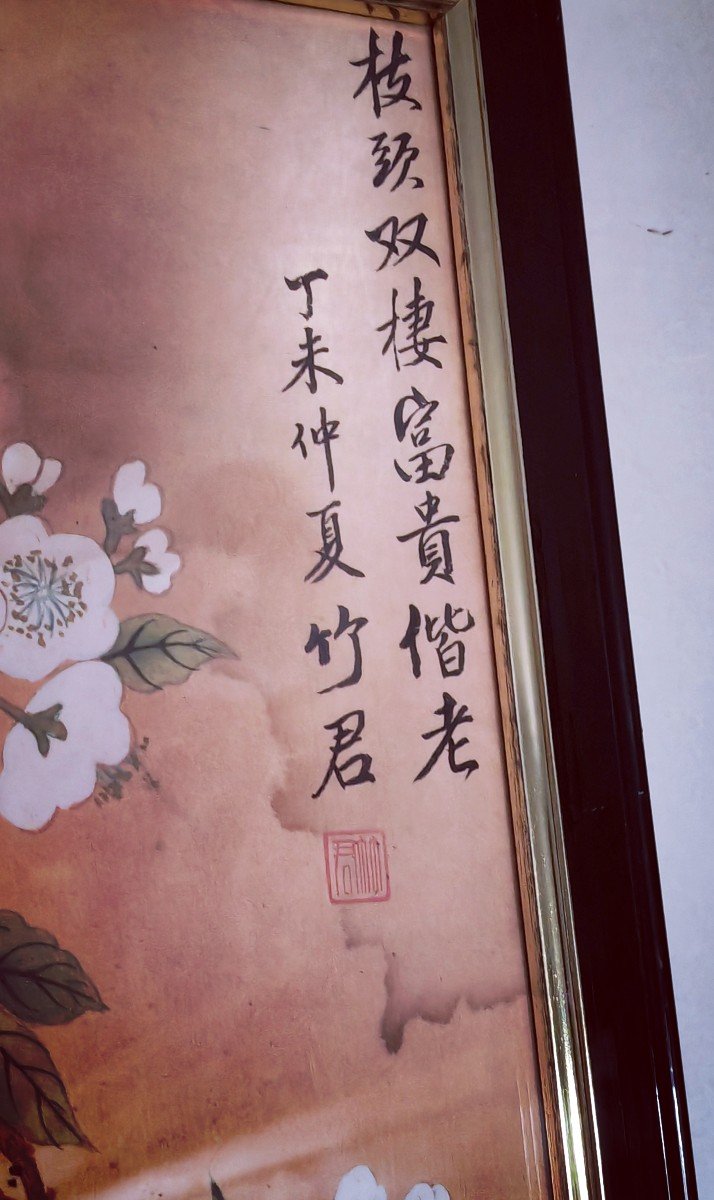 枝头双棲富貴偕老
丁未仲夏竹君
竹君